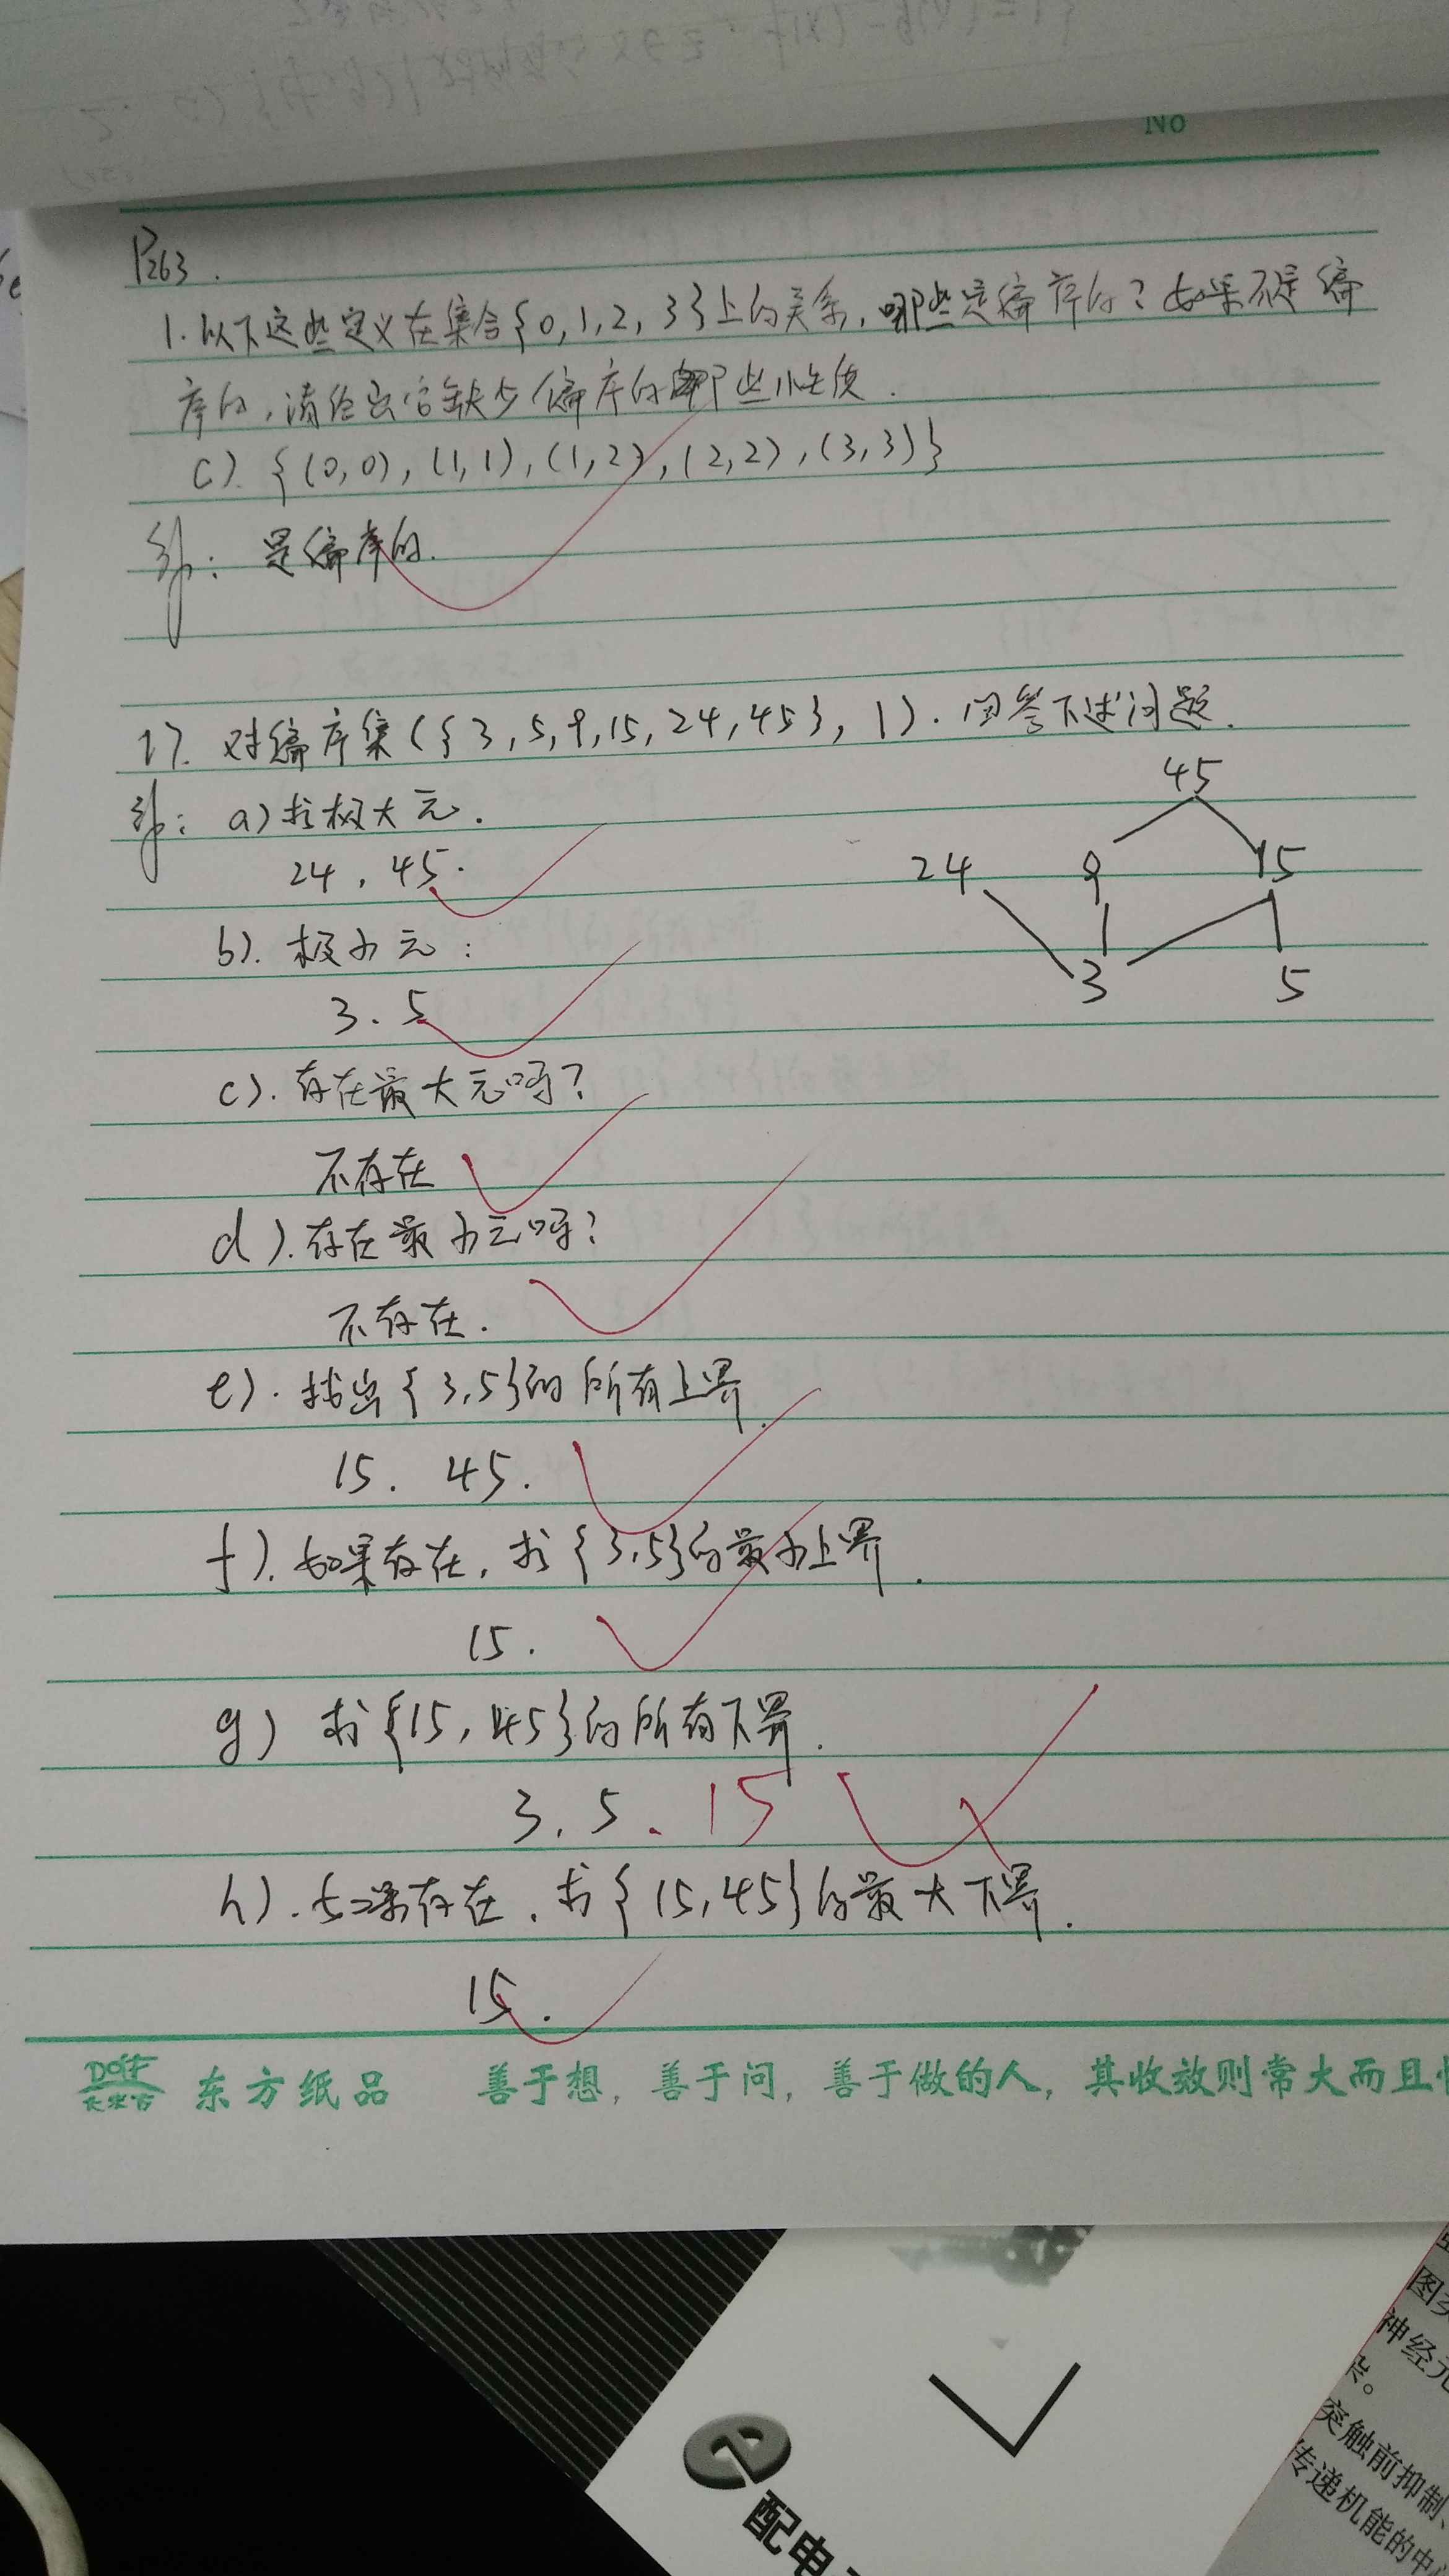 No
P263.
1. 以下这些定义在集合{0,1,2,3}上的关系,哪些是偏序的?如果不是偏
序的,请给出它缺少偏序的哪些性质.
c). {(0,0),(1,1),(1,2),(2,2),(3,3)}
解: 是偏序的.
17. 对偏序集({3,5,9,15,24,45},|).回答下述问题.
解: a)求极大元.
24, 45.
45
24 9 15
3 5
b). 极小元:
3. 5
c). 存在最大元吗?
不存在
d). 存在最小元吗?
不存在.
e). 找出{3,5}的所有上界.
15. 45.
f). 如果存在,求{3,5}的最小上界.
15.
g) 求{15,45}的所有下界.
3. 5. 15
h). 如果存在.求{15,45}的最大下界.
15.
东方纸品 善于想,善于问,善于做的人,其收效则常大而且
e
配电
图
神经元
突触前抑制、
传递机能的中